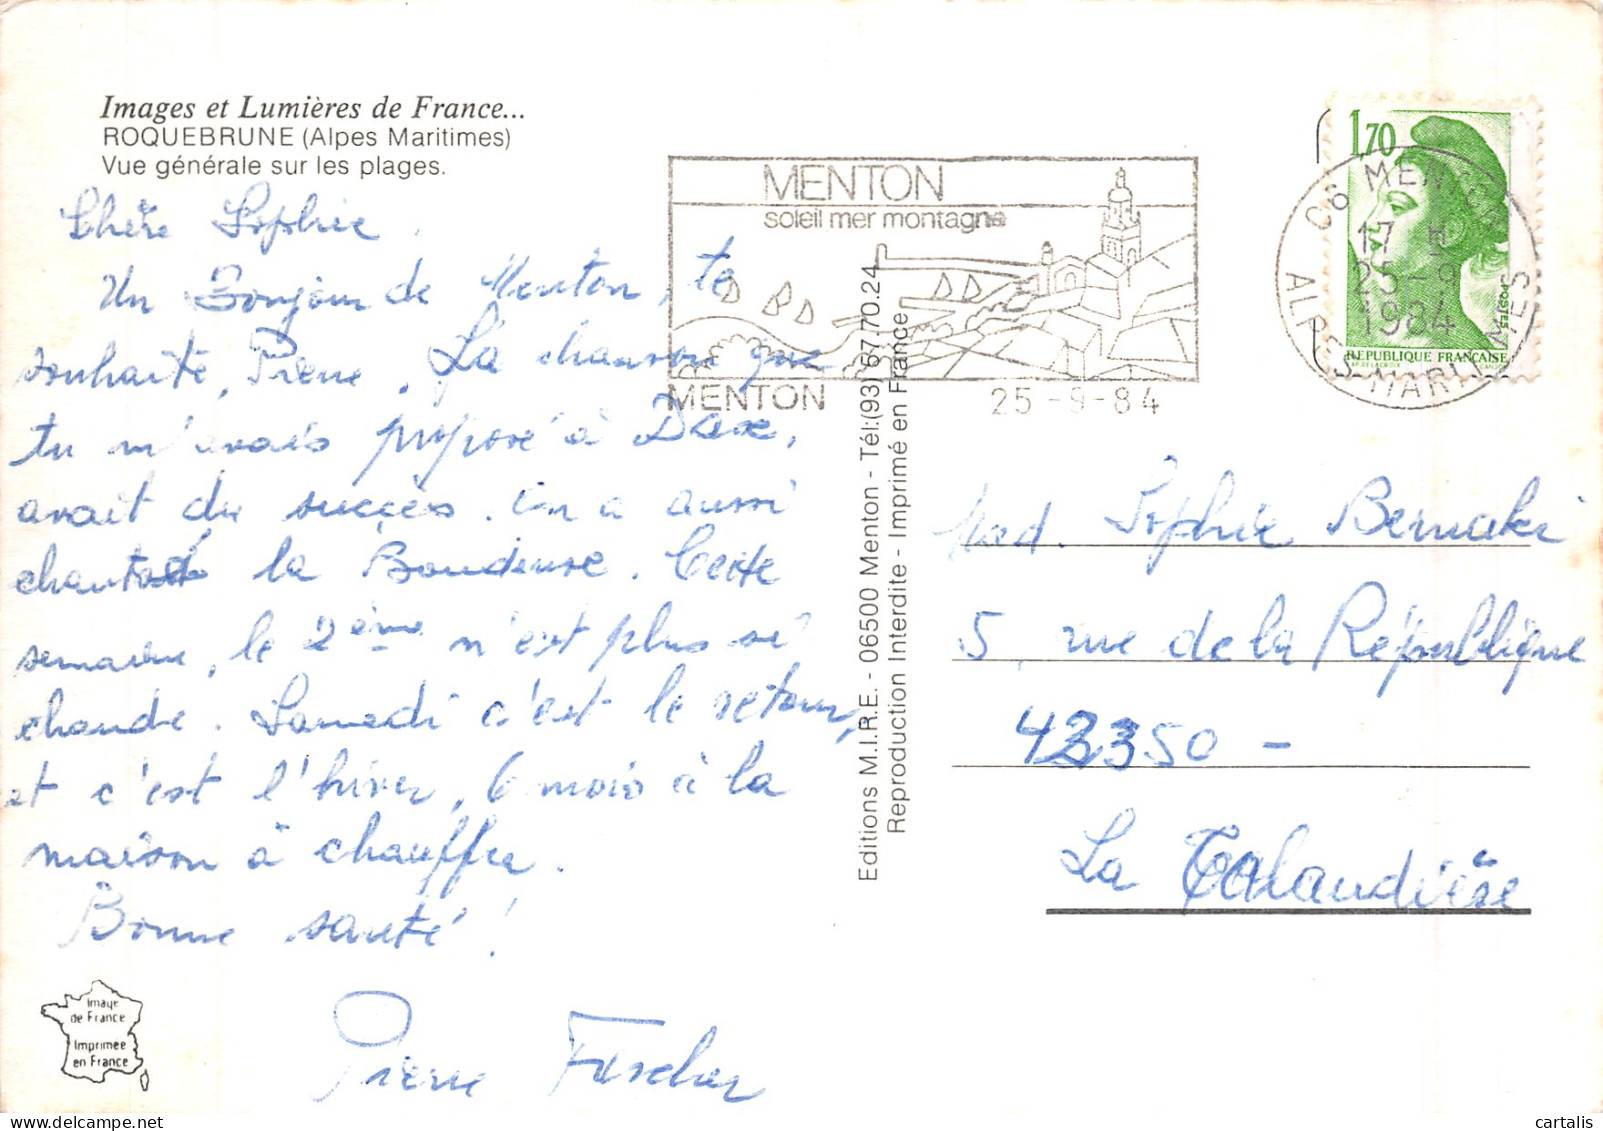 Images et Lumières de France...
ROQUEBRUNE (Alpes Maritimes)
Vue générale sur les plages.
Chère Sophie.
Un Bonjour de Menton, te
souhaite, Pierre. La chanson que
tu m'avais proposé à Dax,
avait du succès. on a aussi
chanté la Boudeuse. Cette
semaine, le 2ème n'est plus si
chaude. Samedi c'est le retour,
et c'est l'hiver, 6 mois à la
maison à chauffer.
Bonne santé!
Pierre Fischer
Image
de France
Imprimée
en France
MENTON
soleil mer montagne
MENTON
25-9-84
Editions M.I.R.E. - 06500 Menton - Tél:(93) 57.70.24
Reproduction Interdite - Imprimé en France
1,70
POSTES
REPUBLIQUE FRANÇAISE
06 MENTON
17 H
25-9
1984
ALPES-MARITIMES
Mad. Sophie Bernaki
5, rue de la République
42350 -
La Talaudière
cartalis